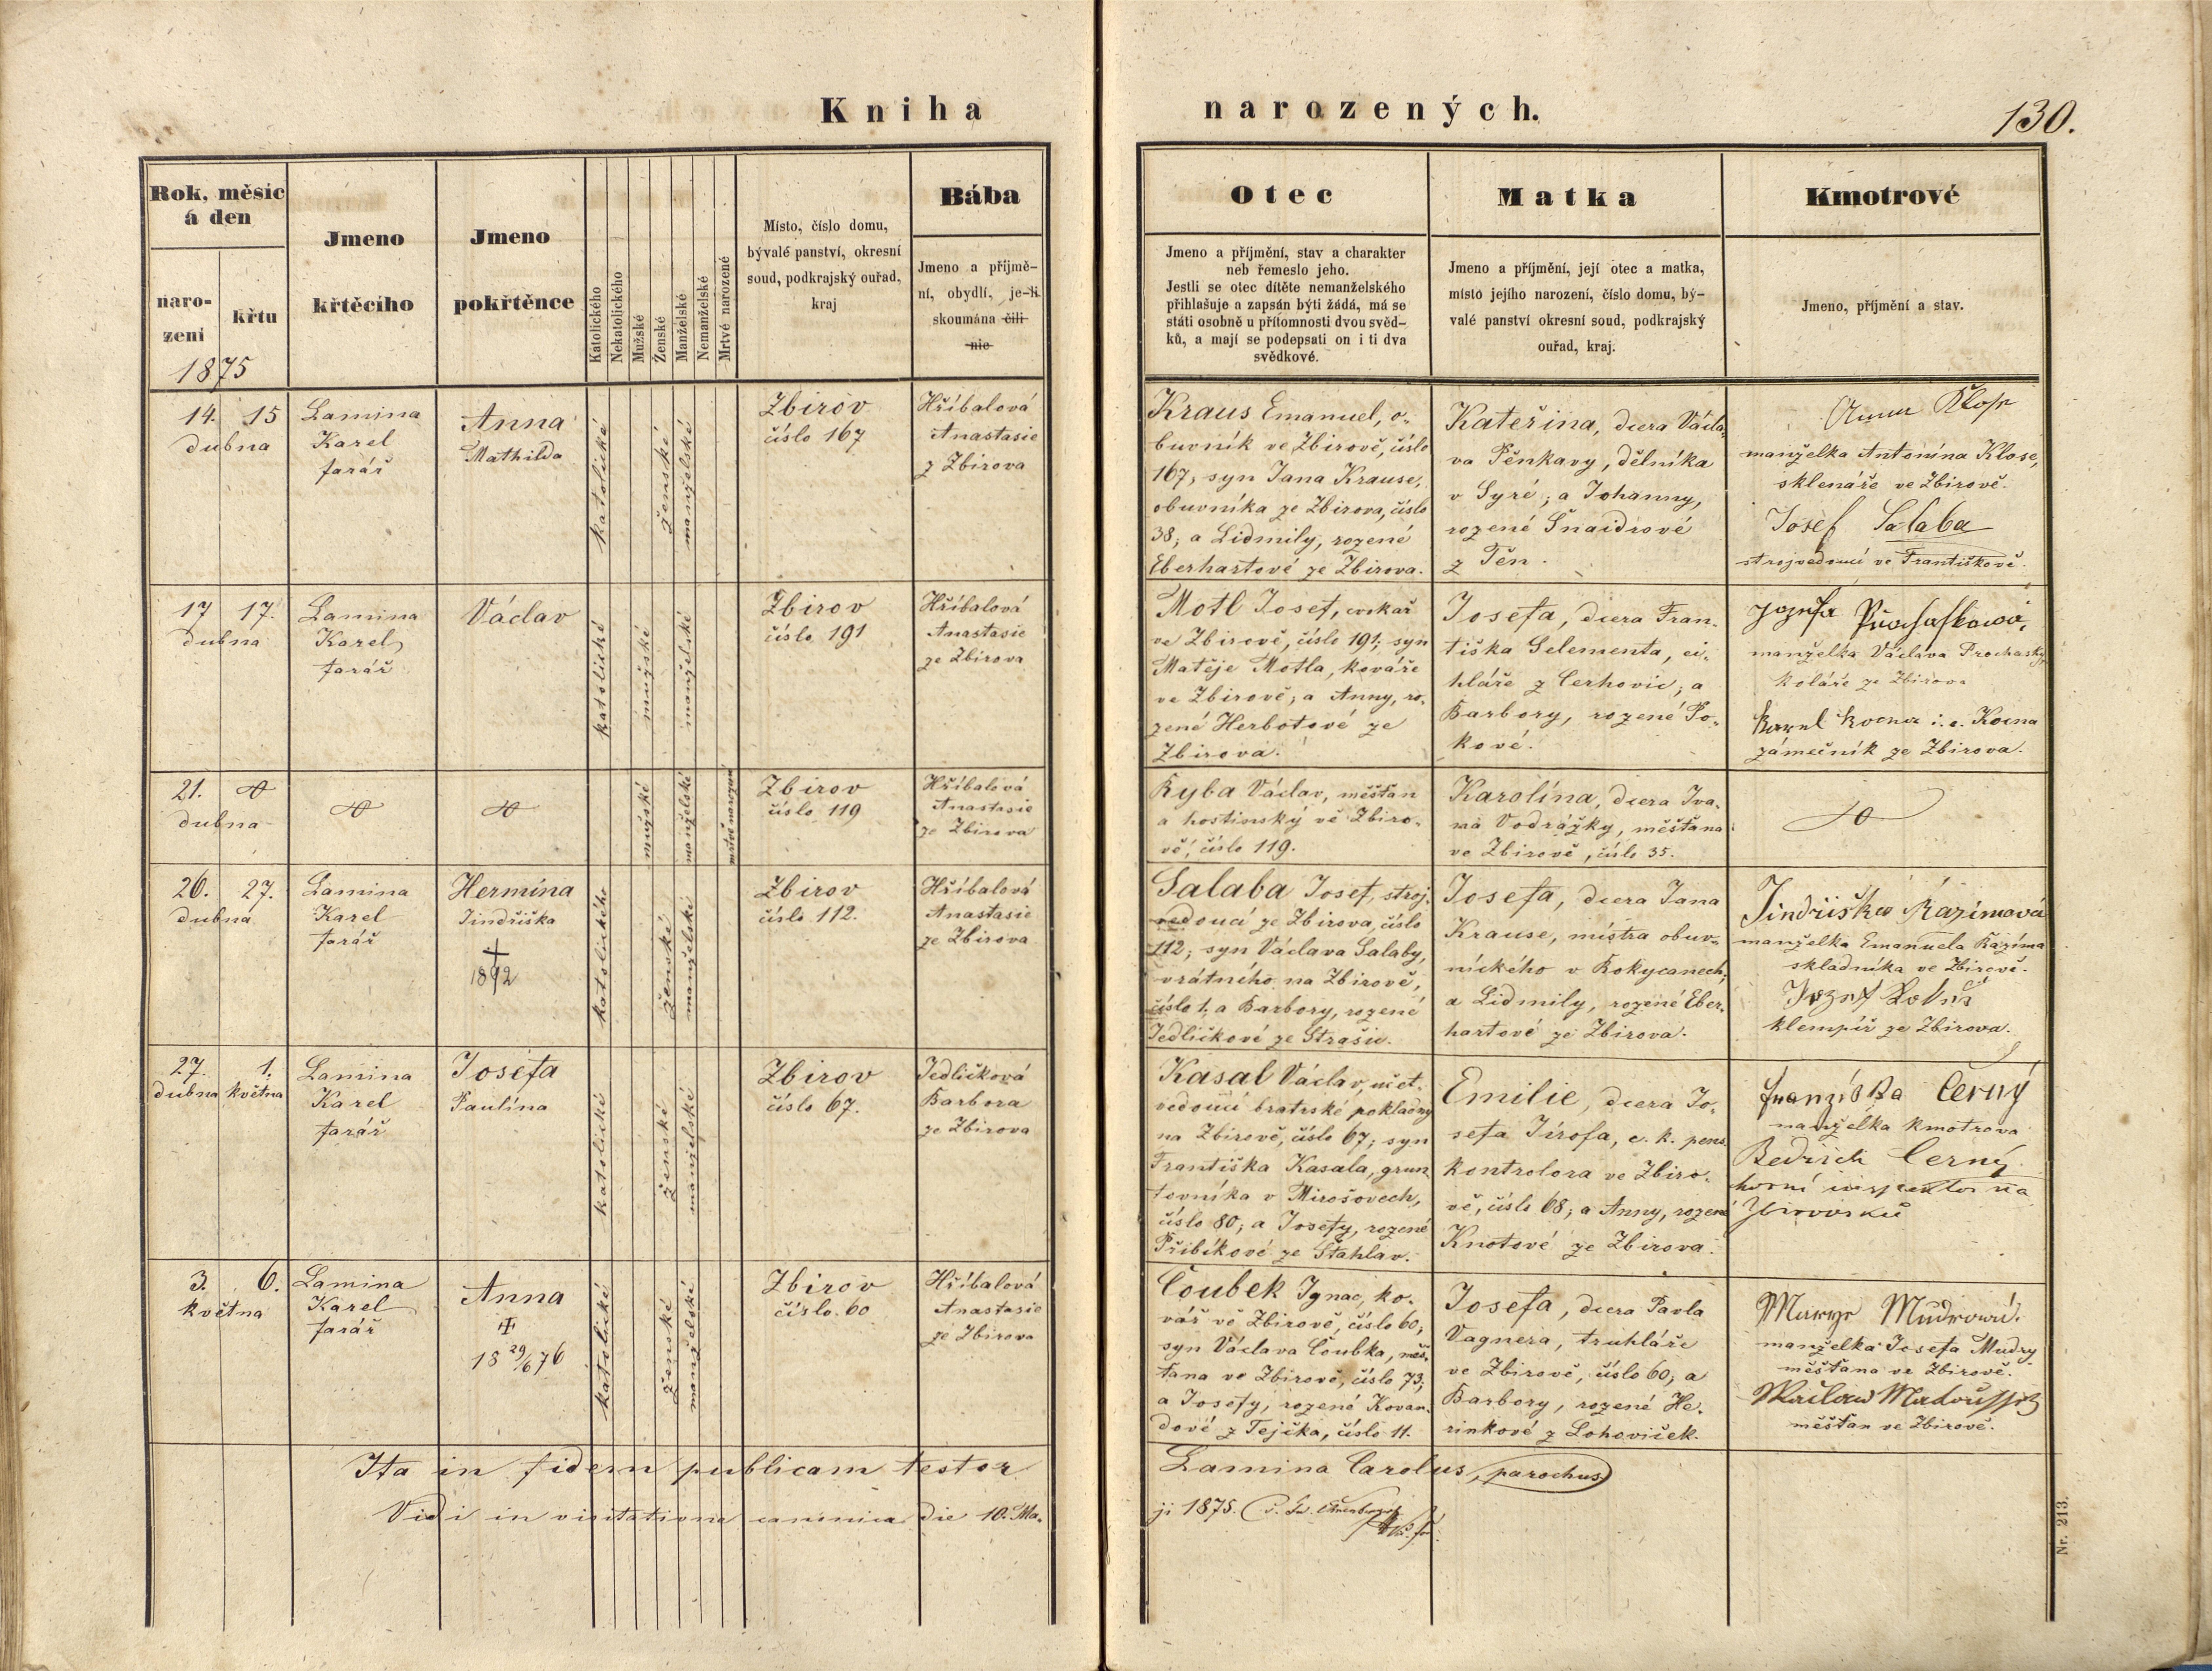 Kniha narozených.
130.
Rok, měsíc
á den
naro-
zení
křtu
1875
Jmeno
křtěcího
Jmeno
pokřtěnce
Katolického
Nekatolického
Mužské
Ženské
Manželské
Nemanželské
Mrtvé narozené
Místo, číslo domu,
bývalé panství, okresní
soud, podkrajský ouřad,
kraj
Bába
Jmeno a příjmě-
ní, obydlí, je-li
skoumána čili
nic
Otec
Jmeno a příjmění, stav a charakter
neb řemeslo jeho.
Jestli se otec dítěte nemanželského
přihlašuje a zapsán býti žádá, má se
státi osobně u přítomnosti dvou svěd-
ků, a mají se podepsati on i ti dva
svědkové.
Matka
Jmeno a příjmění, její otec a matka,
místo jejího narození, číslo domu, bý-
valé panství okresní soud, podkrajský
ouřad, kraj.
Kmotrové
Jmeno, příjmění a stav.
14. 15
dubna
Lamina
Karel
farář
Anna
Mathilda
katolické
ženské
manželské
Zbirov
číslo 167
Hříbalová
Anastasie
z Zbirova
Kraus Emanuel, o-
buvník ve Zbirově, číslo
167, syn Jana Krause,
obuvníka ze Zbirova, číslo
38; a Lidmily, rozené
Eberhartové ze Zbirova.
Kateřina, dcera Václa-
va Pěnkavy, dělníka
v Syré; a Johanny,
rozené Šnaidrové
z Těn.
Anna Klose
manželka Antonína Klose,
sklenáře ve Zbirově.
Josef Salaba
strojvedoucí ve Františkově.
17 17.
dubna
Lamina
Karel
farář
Václav
katolické
mužské
manželské
Zbirov
číslo 191
Hříbalová
Anastasie
ze Zbirova
Motl Josef, cvokař
ve Zbirově, číslo 191; syn
Matěje Motla, kováře
ve Zbirově; a Anny, ro-
zené Herbotové ze
Zbirova.
Josefa, dcera Fran-
tiška Selementa, ci-
hláře z Cerhovic; a
Barbory, rozené Po-
kové.
manželka Václava Prochasky,
koláře ze Zbirova
Karel Kocna i. e. Kocna
zámečník ze Zbirova.
21.
dubna
mužské
manželské
mrtvě narozené
Zbirov
číslo 119
Hříbalová
Anastasie
ze Zbirova
Ryba Václav, měšťan
a hostinský ve Zbiro-
vě, číslo 119.
Karolína, dcera Iva-
na Vodrážky, měšťana
ve Zbirově, číslo 35.
26. 27.
dubna
Lamina
Karel
farář
Hermína
Jindřiška
†
1892
katolického
ženské
manželské
Zbirov
číslo 112.
Hříbalová
Anastasie
ze Zbirova
Salaba Josef, stroj-
vedoucí ze Zbirova, číslo
112; syn Václava Salaby,
vrátného na Zbirově,
číslo 1; a Barbory, rozené
Jedličkové ze Strašic.
Josefa, dcera Jana
Krause, místra obuv-
nického v Rokycanech;
a Lidmily, rozené Eber-
hartové ze Zbirova.
Jindřiška Kazimová
manželka Emanuela Kazíma
skladníka ve Zbirově.
klempíř ze Zbirova.
27. 1.
dubna května
Lamina
Karel
farář
Josefa
Paulína
katolické
ženské
manželské
Zbirov
číslo 67.
Jedličková
Barbora
ze Zbirova
Kasal Václav, účet-
vedoucí bratrské pokladny
na Zbirově, číslo 67; syn
Františka Kasala, grun-
tovníka v Mirošovech,
číslo 80; a Josefy, rozené
Přibíkové ze Štahlav.
Emilie, dcera Jo-
sefa Jírofa, c. k. pens.
kontrolora ve Zbiro-
vě, číslo 68; a Anny, rozené
Knotové ze Zbirova.
Franziska Černý
manželka kmotrova
Bedřich Černý
horní inspektor na
Zbirovsku
3. 6.
května
Lamina
Karel
farář
Anna
‡
18 29/6 76
katolické
ženské
manželské
Zbirov
číslo 60
Hříbalová
Anastasie
ze Zbirova
Čoubek Ignac, ko-
vář ve Zbirově, číslo 60;
syn Václava Čoubka, měš-
ťana ve Zbirově, číslo 73;
a Josefy, rozené Kovan-
dové z Tejčka, číslo 11.
Josefa, dcera Pavla
Vagnera, truhláře
ve Zbirově, číslo 60; a
Barbory, rozené He-
rinkové z Lohoviček.
Marye Mudrová.
manželka Josefa Mudry
měšťana ve Zbirově.
Waclaw Matoussek
měšťan ve Zbirově.
Ita in fidem publicam testor Lamina Carolus, parochus
Vidi in visitatione canonica die 10. Ma-
ji 1875.
Nr. 213.